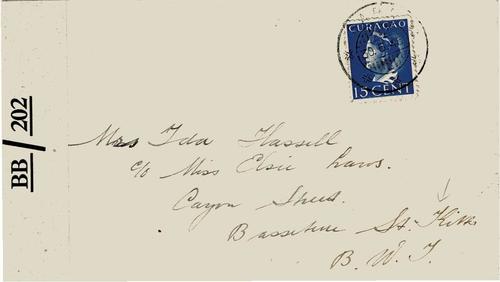 CURAÇAO
15 CENT
BB/202
Mrs Ida Hassell
c/o Miss Elsie Laws.
Cayon Street.
Basseterre St. Kitts
B. W. I.